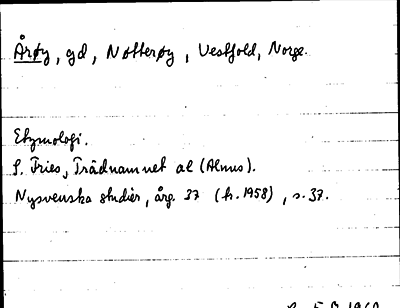 Årøy, gd, Nøtterøy, Vestfold, Norge.
Etymologi.
S. Fries, Trädnamnet al (Alnus).
Nysvenska studier, årg. 37 (tr. 1958), s. 37.